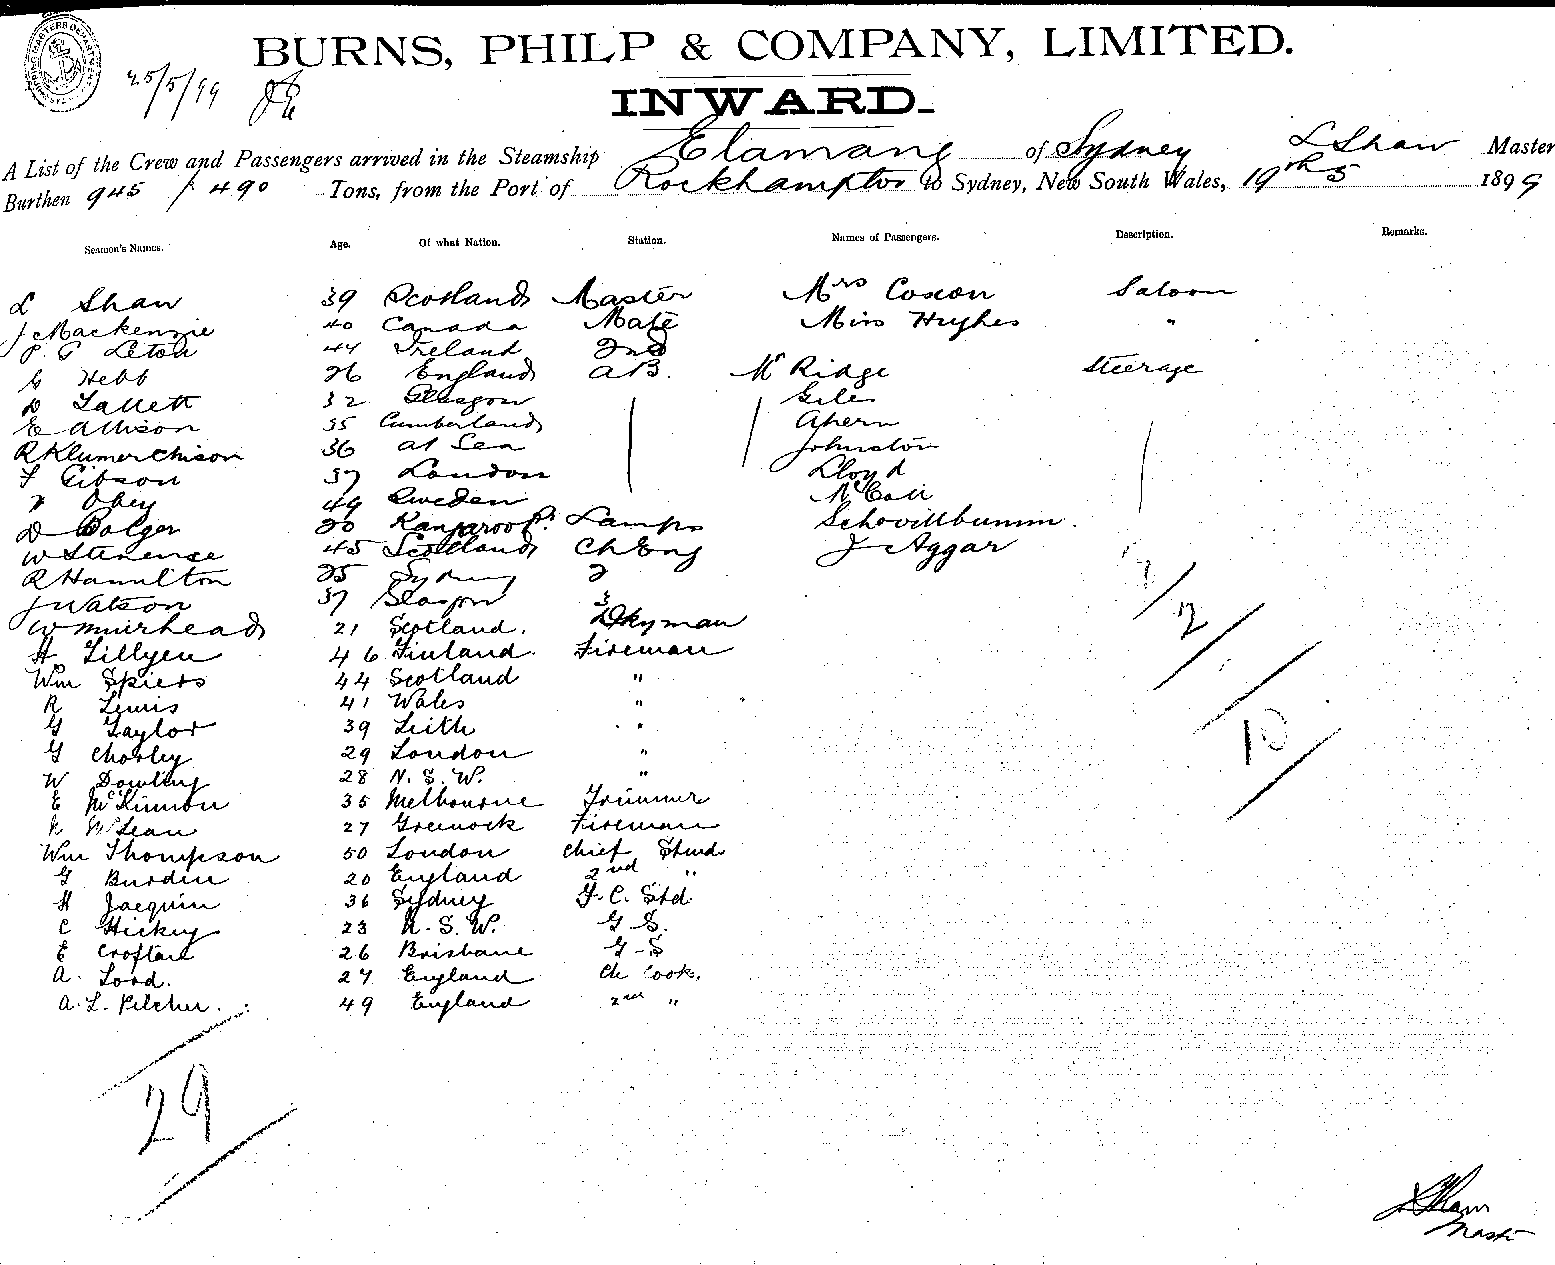 BURNS, PHILP & COMPANY, LIMITED.
25/5/99
INWARD.
A List of the Crew and Passengers arrived in the Steamship Elamang of Sydney L Shaw Master
Burthen 945 / 490 Tons, from the Port of Rockhampton to Sydney, New South Wales, 19th 5 1899
Seamen's Names. Age. Of what Nation. Station. Names of Passengers. Description. Remarks.
L Shaw 39 Scotland Master Mrs Coxon Saloon
J Mackenzie 40 Canada Mate Miss Hughes "
P. G Leton 44 Ireland 2nd
G Hebb 26 England AB. Mr Ridge Steerage
D Tallett 32 Glasgow Giles
E Allison 35 Cumberland Ahern
R Klumerchison 36 at Sea Johnston
F Gibson 37 London Lloyd
Obey 49 Sweden McCall
D Bolger 20 Kangaroo Pt. Lamps Schovillbumm.
W Stevense 45 Scotland Ch Eng J Aggar
R Hamilton 25 Sydney 2
J Watson 37 Glasgow 3
W Muirhead 21 Scotland. Dkyman
H Lillyen 46 Finland. Fireman
Wm Spiers 44 Scotland "
R Lewis 41 Wales "
G Taylor 39 Leith "
G Chorley 29 London "
W Dowling 28 N.S.W. "
E McKinnon 35 Melbourne Trimmer
N McLean 27 Greenock Fireman
Wm Thompson 50 London Chief Stwd
G Burdin 20 England 2nd "
H Jaequin 36 Sydney F.C. Std
C Hickey 23 N.S.W. G.S.
E Croftan 26 Brisbane G-S
A. Lord. 27 England Ch Cook.
A. L. Pilcher. 49 England 2nd "
2
10
29
L Shaw
Master